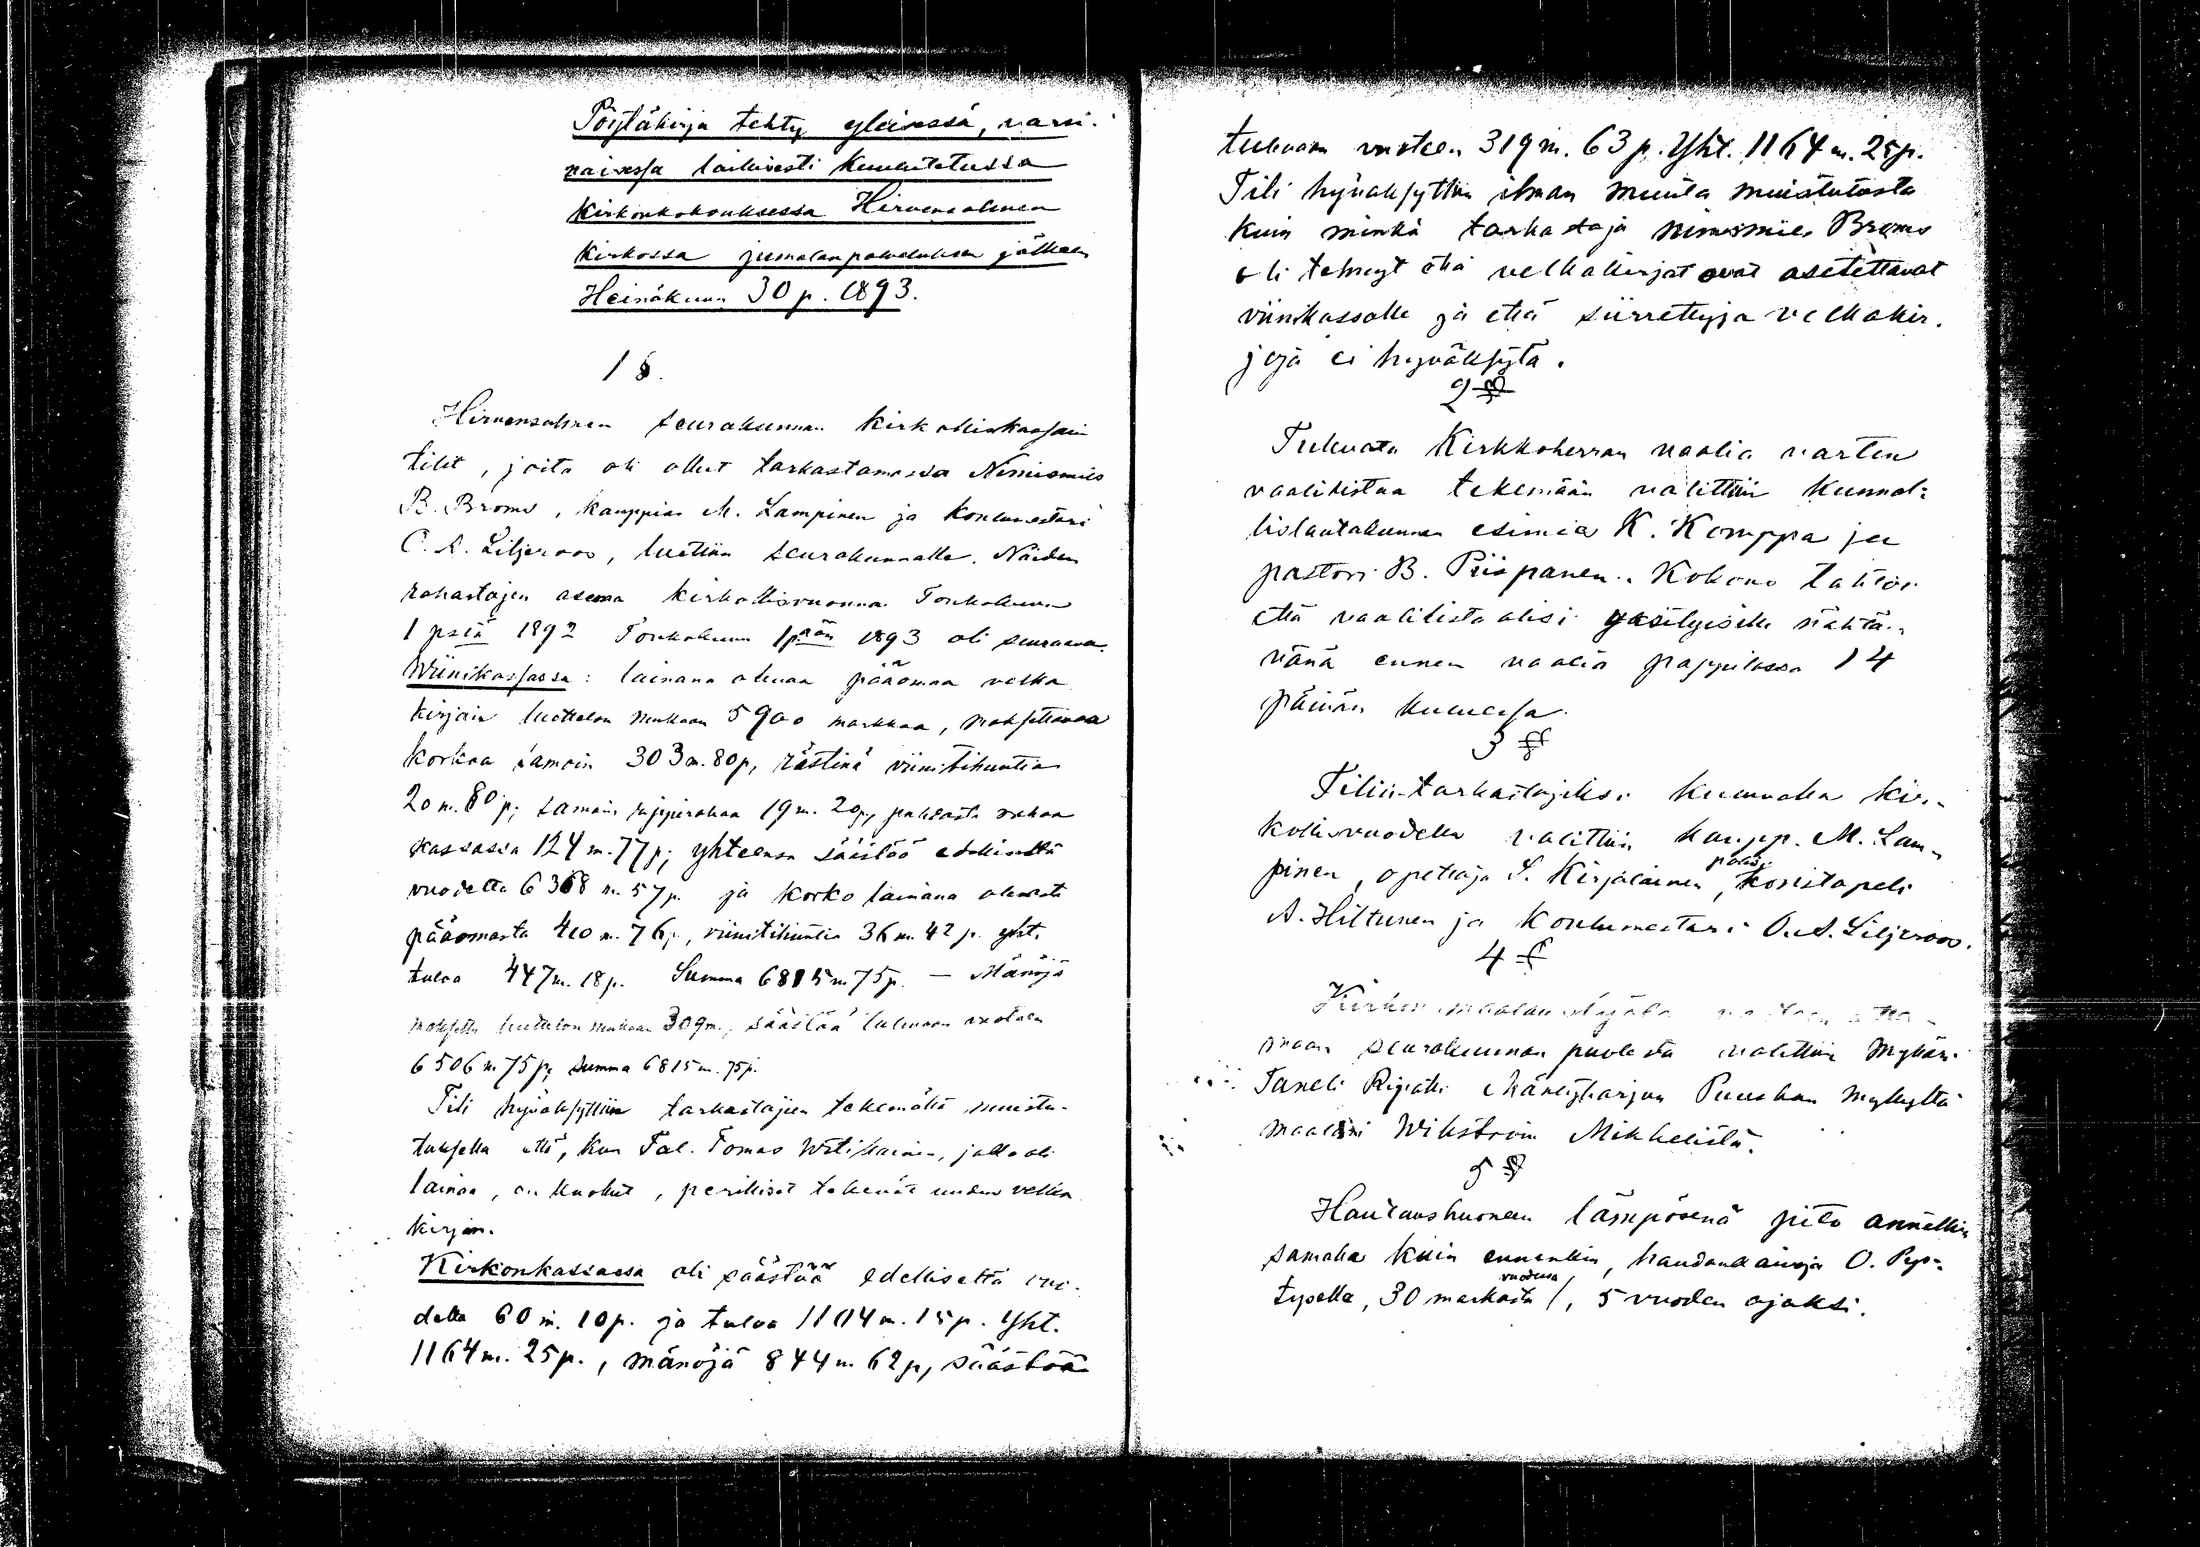 Pöytäkirja tehty yleisessä, varsi-
naisessa laillisesti kuulutetussa
kirkonkokouksessa Hirvensalmen
kirkossa jumalanpalveluksen jälkeen
Heinäkuun 30 p. 1893.
1 §.
Hirvensalmen seurakunnan kirkolliskassain
tilit, joita oli ollut tarkastamassa Nimismies
B. Broms, kauppias M. Lampinen ja koulumestari
C. A. Liljeroos, luettiin seurakunnalle. Näiden
rahastojen asema kirkollisvuonna Toukokuun
1 pstä 1892 Toukokuun 1 pään 1893 oli seuraava.
Wiinikassassa: lainana olevaa pääomaa velka
kirjain luettelon mukaan 5900 markkaa, maksettavaa
korkoa samoin 303 m. 80 p, rästinä viinitihuntia
20 m. 80 p; samoin rippirahaa 19 m. 20 p, puhdasta rahaa
kassassa 124 m. 77 p; yhteensä säästöä edelliseltä
vuodelta 6368 m. 57 p. ja korko lainana olevasta
pääomasta 410 m. 76 p, viinitihuntia 36 m. 42 p. yht.
tuloa 447 m. 18 p. Summa 6815 m 75 p. — Menoja
maksettu luettelon mukaan 309 m., säästöä tulevaan vuoteen
6506 m 75 p; summa 6815 m. 75 p.
Tili hyväksyttiin tarkastajien tekemällä muistu-
tuksella että, kun Tal. Tomas Wätikainen, jolla oli
lainaa, on kuollut, perilliset tekevät uuden velka
kirjan.
Kirkonkassassa oli säästöä edelliseltä vuo-
delta 60 m. 10 p. ja tuloa 1104 m. 15 p. Yht.
1164 m. 25 p., menoja 844 m 62 p, säästöä
tulevaan vuoteen 319 m. 63 p. Yht. 1164 m. 25 p.
Tili hyväksyttiin ilman muuta muistutusta
kuin minkä tarkastaja nimismies Broms
oli tehnyt että velkakirjat ovat asetettavat
viinikassalle ja että siirrettyjä velkakir-
joja ei hyväksytä.
2 §
Tulevata Kirkkoherran vaalia varten
vaalilistaa tekemään valittiin kunnal-
lislautakunnan esimies K. Komppa ja
pastori B. Piispanen. Kokous tahtoi
että vaalilista olisi yksityisille nähtä-
vänä ennen vaalia pappilassa 14
päivän kuluessa.
3 §
Tilin-tarkastajiksi kuluvalla kir-
kollisvuodella valittiin kaupp. M. Lam-
pinen, opettaja S. Kirjalainen, polis. konstapeli
A. Hiltunen ja koulumestari C. A. Liljeroos.
4 §
Kirkon
maan seurakunnan puolesta valittiin mylläri
Taneli Ripatti Mäntyharjun Puuskan myllyltä
maalari Wikström Mikkelistä.
5 §
Hautaushuoneen lämpösenä pito annettiin
samalla kuin ennenkin, haudankaivaja O. Pyp-
tysella, 30 markasta vuodessa /, 5 vuoden ajaksi.